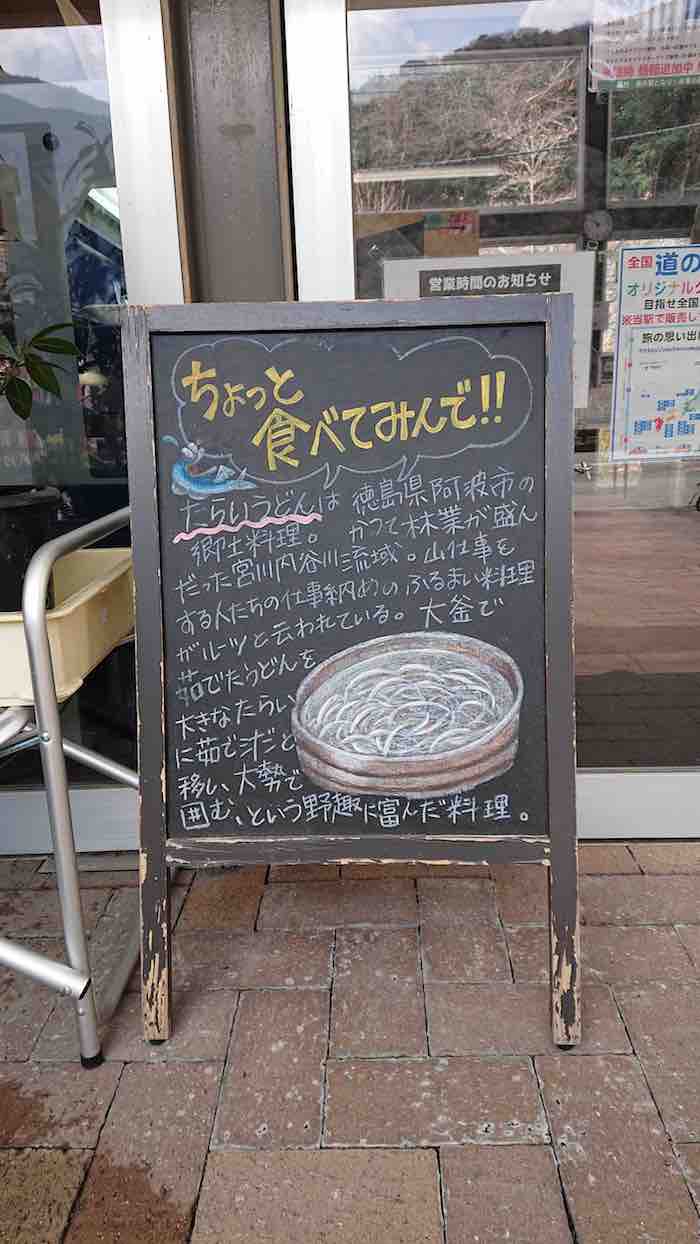 営業時間のお知らせ
全国 道の
オリジナル
目指せ全国
米当駅で販売し
旅の思い出
ちょっと
食べてみんで!!
たらいうどんは 徳島県阿波市の
郷土料理。 かつて林業が盛ん
だった宮川内谷川流域。山仕事を
する人たちの仕事納めのふるまい料理
がルーツと云われている。大釜で
茹でたうどんを
大きなたらい
に茹で汁だと
移し、大勢で
囲む、という野趣に富んだ料理。